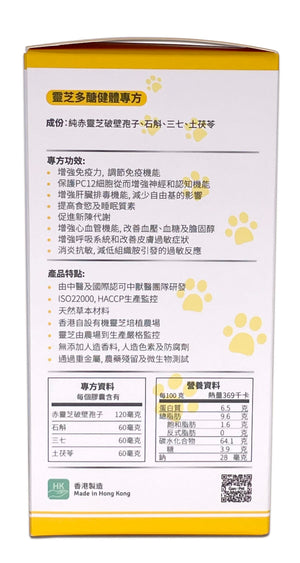 靈芝多醣健體專方
成份：純赤靈芝破壁孢子、石斛、三七、土茯苓
專方功效:
• 增強免疫力, 調節免疫機能
• 保護PC12細胞從而增強神經和認知機能
• 增強肝臟排毒機能, 減少自由基的影響
• 提高食慾及睡眠質素
• 促進新陳代謝
• 增強心血管機能, 改善血壓、血糖及膽固醇
• 增強呼吸系統和改善皮膚過敏症狀
• 消炎抗敏, 減低組織胺引發的過敏反應
產品特點:
• 由中醫及國際認可中獸醫團隊研發
• ISO22000, HACCP生產監控
• 天然草本材料
• 香港自設有機靈芝培植農場
• 靈芝由農場到生產嚴格監控
• 無添加人造香料, 人造色素及防腐劑
• 通過重金屬, 農藥殘留及微生物測試
專方資料
每個膠囊含有
赤靈芝破壁孢子 120毫克
石斛 60毫克
三七 60毫克
土茯苓 60毫克
營養資料
每100 克 熱量369千卡
蛋白質 6.5 克
總脂肪 9.6 克
飽和脂肪 1.6 克
反式脂肪 0 克
碳水化合物 64.1 克
糖 3.9 克
鈉 28 毫克
HK
香港製造
Made in Hong Kong